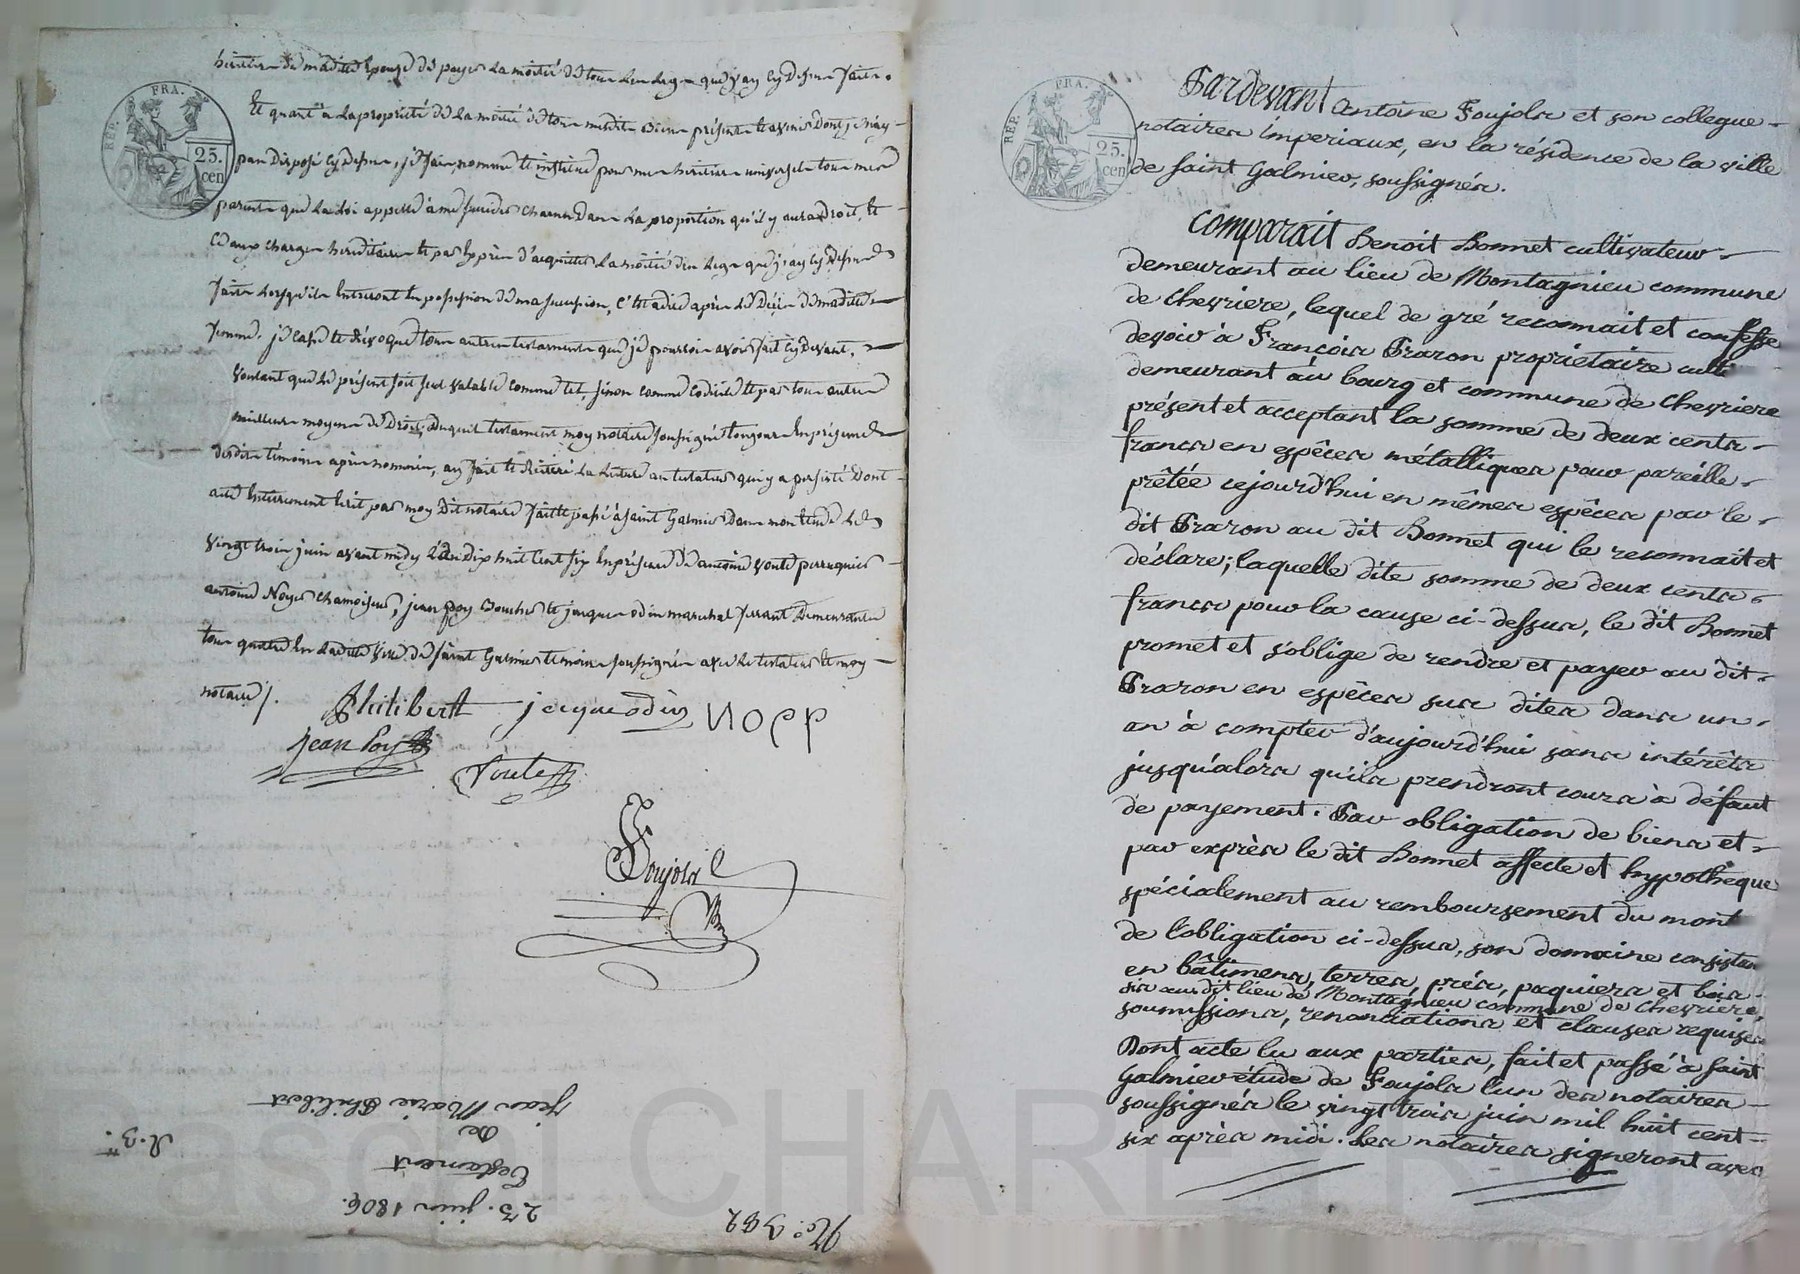 héritière de madite Epouze de payer la moitié de tous les legs que j'ay cy dessus faits.
Et quant à la propriété de la moitié de tous mesdits Biens présents et avenir dont je n'ay
pas disposé cy dessus, je fais, nomme et institue pour mes héritiers universels tous mes
parents que la Loi appelle à me succéder chacun dans la proportion qu'il y aura droit, et
ce aux charges héréditaires et par exprès d'acquitter la moitié des legs que j'ay cy dessus
faits lorsqu'ils Entreront En possession de ma succession, c'est adire après le Décès de madite
femme. je casse et révoque tous autres testaments que je pourrois avoir fait cy devant,
voulant que le présent soit seul valable comme tel, sinon comme codicile et par tous autres
meilleurs moyens de Droit, Duquel testament moy notaire soussigné toujours En présence
desdits témoins après nommés, ay fait et Réitéré la lecture au testateur qui y a persisté Dont
acte Entièrement Ecrit par moy Dit notaire fait et passé à Saint Galmier Dans mon Etude Le
vingt trois juin avant midy l'an Dix huit Cent six En présence de antoine voute perruquier
antoine Noyer Chamoiseur, jean poy Boucher et jacque odin maréchal ferrant Demeurants
tous quatre En Ladite Ville de Saint Galmier témoins soussignés avec le testateur et moy
notaire /.
Philibert jacque odin
jean Poy
Voute
Foujols
REP. FRA.
25.
cen
Jean Marie Philibert
de
Testament
23. juin 1806.
R. 3
N.o 392
REP. FRA.
25.
cen
Pardevant Antoine Foujols et son collegue
notaires imperiaux, en la résidence de la ville
de saint Galmier, soussignés.
Comparait Benoit Bonnet cultivateur
demeurant au lieu de Montagnieu commune
de chevriere, lequel de gré reconnait et confesse
devoir à François Praron propriétaire culti
demeurant au bourg et commune de Chevriere
présent et acceptant la somme de deux cents
francs en espêces métalliques pour pareille
prêtée cejourd'hui en mêmes espêces par le
dit Praron au dit Bonnet qui le reconnait et
déclare; laquelle dite somme de deux cents
francs pour la cause ci-dessus, le dit Bonnet
promet et s'oblige de rendre et payer au dit
Praron en espêces sus dites dans un
an à compter d'aujourd'hui sans intérêts
jusqu'alors qu'ils prendront cours à défaut
de payement. Par obligation de biens et
par exprès le dit Bonnet affecte et hypothèque
spécialement au remboursement du mont
de l'obligation ci-dessus, son domaine consistan
en bâtimens, terres, prés, paquiers et bois
sis ausdit lieu de Montagnieu commune de Chevriere,
soumissions, renonciations et clauses requises
Dont acte lu aux parties, fait et passé à saint
Galmier étude de Foujols l'un des notaires
soussignés le vingt trois juin mil huit cent
six après midi. Les notaires signeront avec
Pascal CHAREYRON